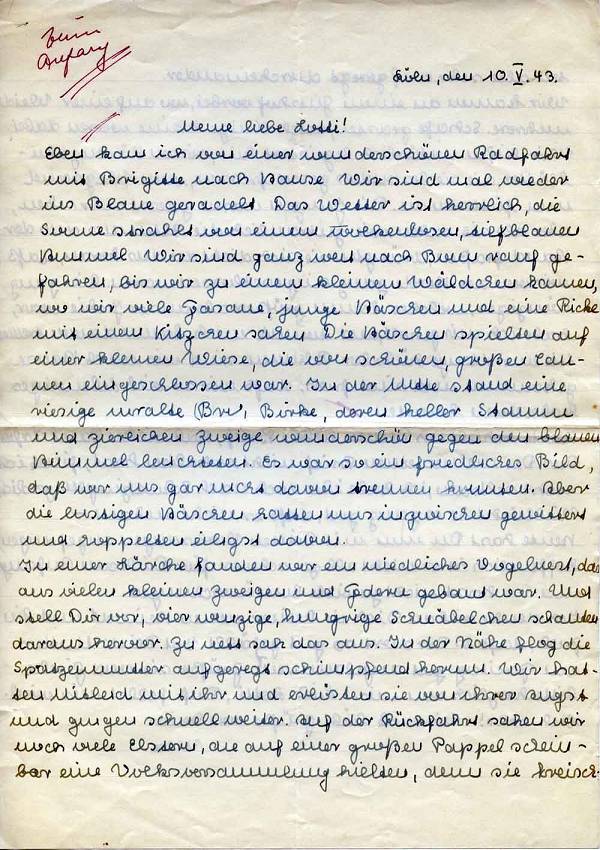 zum
Anfang
Köln, den 10. V. 43.
Meine liebe Lotti!
Eben kam ich von einer wunderschönen Radfahrt
mit Brigitte nach Hause. Wir sind mal wieder
ins Blaue geradelt. Das Wetter ist herrlich, die
Sonne strahlt von einem wolkenlosen, tiefblauen
Himmel. Wir sind ganz weit nach Bonn rauf ge-
fahren, bis wir zu einem kleinen Wäldchen kamen,
wo wir viele Fasane, junge Häschen und eine Ricke
mit einem Kitzchen sahen. Die Häschen spielten auf
einer kleinen Wiese, die von schönen, großen Tan-
nen eingeschlossen war. In der Mitte stand eine
riesige uralte (Bir), Birke, deren heller Stamm
und ziereichen Zweige wunderschön gegen den blauen
Himmel leuchteten. Es war so ein friedliches Bild,
daß wir uns gar nicht davon trennen konnten. Aber
die lustigen Häschen hatten uns inzwischen gewittert
und hoppelten eiligst davon.
In einer Lärche fanden wir ein niedliches Vogelnest, das
aus vielen kleinen Zweigen und Federn gebaut war. Und
stell Dir vor, vier winzige, hungrige Schnäbelchen schauten
daraus hervor. Zu nett sah das aus. In der Nähe flog die
Spatzenmutter aufgeregt schimpfend herum. Wir hat-
ten Mitleid mit ihr und erlösten sie von ihrer Angst
und gingen schnell weiter. Auf der Rückfahrt sahen wir
noch viele Elstern, die auf einer großen Pappel schein-
bar eine Volksversammlung hielten, denn sie kreisch-